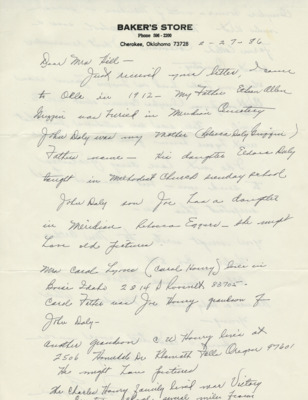 BAKER'S STORE
Phone 596-2200
Cherokee, Oklahoma 73728
2-27-86
Dear Mrs Hill-
Just received your letter, I came
to Olla in 1912- My Father Ethan Allen
was buried in Meridian Cemetery
John Daly was my mother (
Father name- His daughter Edna Daly
taught in Methodist Church sunday school
John Daly son Joe has a daughter
in Meridian she might
have old pictures.
Mrs Carol Lyons (Carol Henry) lives in
Boise Idaho 2014 D Roosevelt 83705-
Carol Father was Joe Henry grandson of
John Daly-
another grandson C.W. Henry lives at
2506 Dr Klamath Falls Oregon 97601
He might have pictures
The Charles Henry family lived near Victory
several miles from